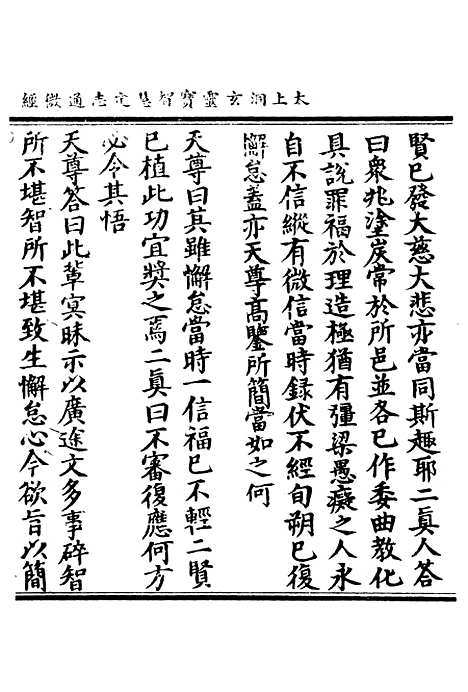 太上洞玄靈寶智慧定志通微經
賢已發大慈大悲亦當同斯趣耶二真人答
曰衆兆塗炭常於所邑並各已作委曲教化
具說罪福於理造極猶有彊梁愚癡之人永
自不信縱有微信當時録伏不經旬朔已復
懈怠盖亦天尊高鑒所簡當如之何
天尊曰其雖懈怠當時一信福已不輕二賢
已植此功宜獎之焉二真曰不審復應何方
必令其悟
天尊答曰此輩冥昧示以廣途文多事碎智
所不堪智所不堪致生懈怠心今欲旨以簡